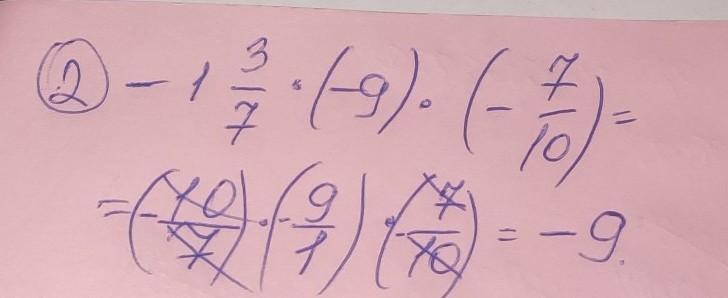 ② - 1 3/7 · (-9) · (- 7/10) =
= (- 10/7) · (- 9/1) · (- 7/10) = - 9.